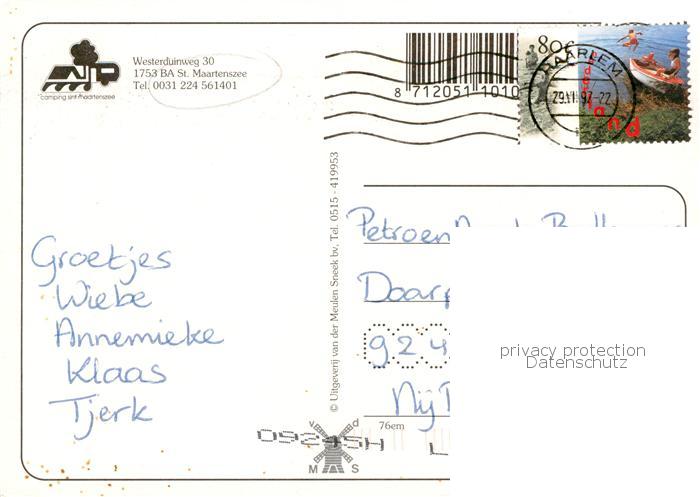 camping sint maartenszee
Westerduinweg 30
1753 BA St. Maartenszee
Tel. 0031 224 561401
8 712051 1010
80c
HAARLEM
nd
© Uitgeverij van der Meulen Sneek bv, Tel. 0515 - 419953
Groetjes
Wiebe
Annemieke
Klaas
Tjerk
Petroen
Doarp
9 2 4
Nij
privacy protection
Datenschutz
76em
v d
M S
09245H L